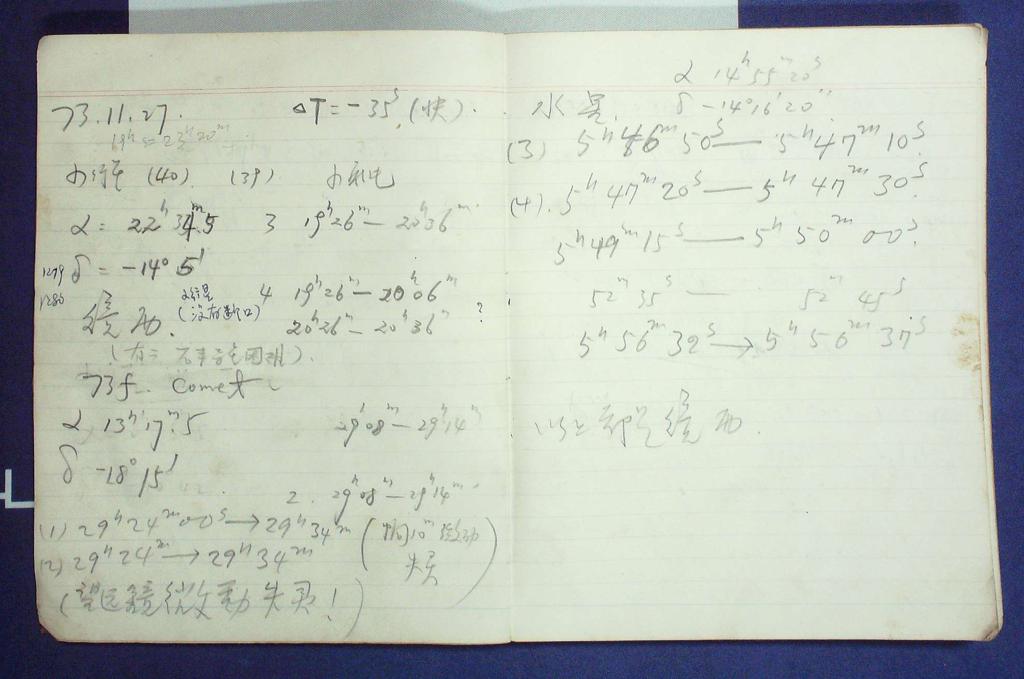 73.11.27. ΔT = -35ˢ (快).
19ʰ = 23ʰ20ᵐ
小行星 (40) (39) 小行星
α = 22ʰ34ᵐ.5 3 19ʰ26ᵐ — 20ʰ36ᵐ
1279 δ = -14° 5′
1280 镜西. (没有断口) 4 19ʰ26ᵐ — 20ʰ06ᵐ
20ʰ26ᵐ — 20ʰ36ᵐ ?
73f. Comet
α 13ʰ17ᵐ.5 29ʰ08ᵐ — 29ʰ14ᵐ
δ -18°15′
2. 29ʰ08ᵐ — 29ʰ14ᵐ
(1) 29ʰ24ᵐ00ˢ → 29ʰ34ᵐ
(2) 29ʰ24ᵐ → 29ʰ34ᵐ
(10ᵐ 微动失灵)
(望远镜微动失灵!)
α 14ʰ55ᵐ20ˢ
水星. δ -14°16′20″
(3) 5ʰ46ᵐ50ˢ — 5ʰ47ᵐ10ˢ
(4). 5ʰ47ᵐ20ˢ — 5ʰ47ᵐ30ˢ
5ʰ49ᵐ15ˢ — 5ʰ50ᵐ00ˢ.
52ᵐ35ˢ — 52ᵐ45ˢ
5ʰ56ᵐ32ˢ → 5ʰ56ᵐ37ˢ
以上都是镜西.